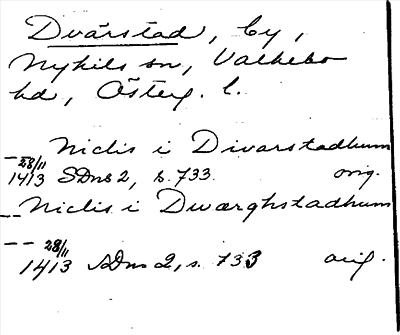 Dvärstad, by,
Nykils sn, Valkebo
hd, Österg. l.
Niclis i Divarstadhum
-- 28/11
1413 SDns 2, s. 733. orig.
-- Niclis i Dwærghstadhum
-- 28/11
1413 SDns 2, s. 733 orig.